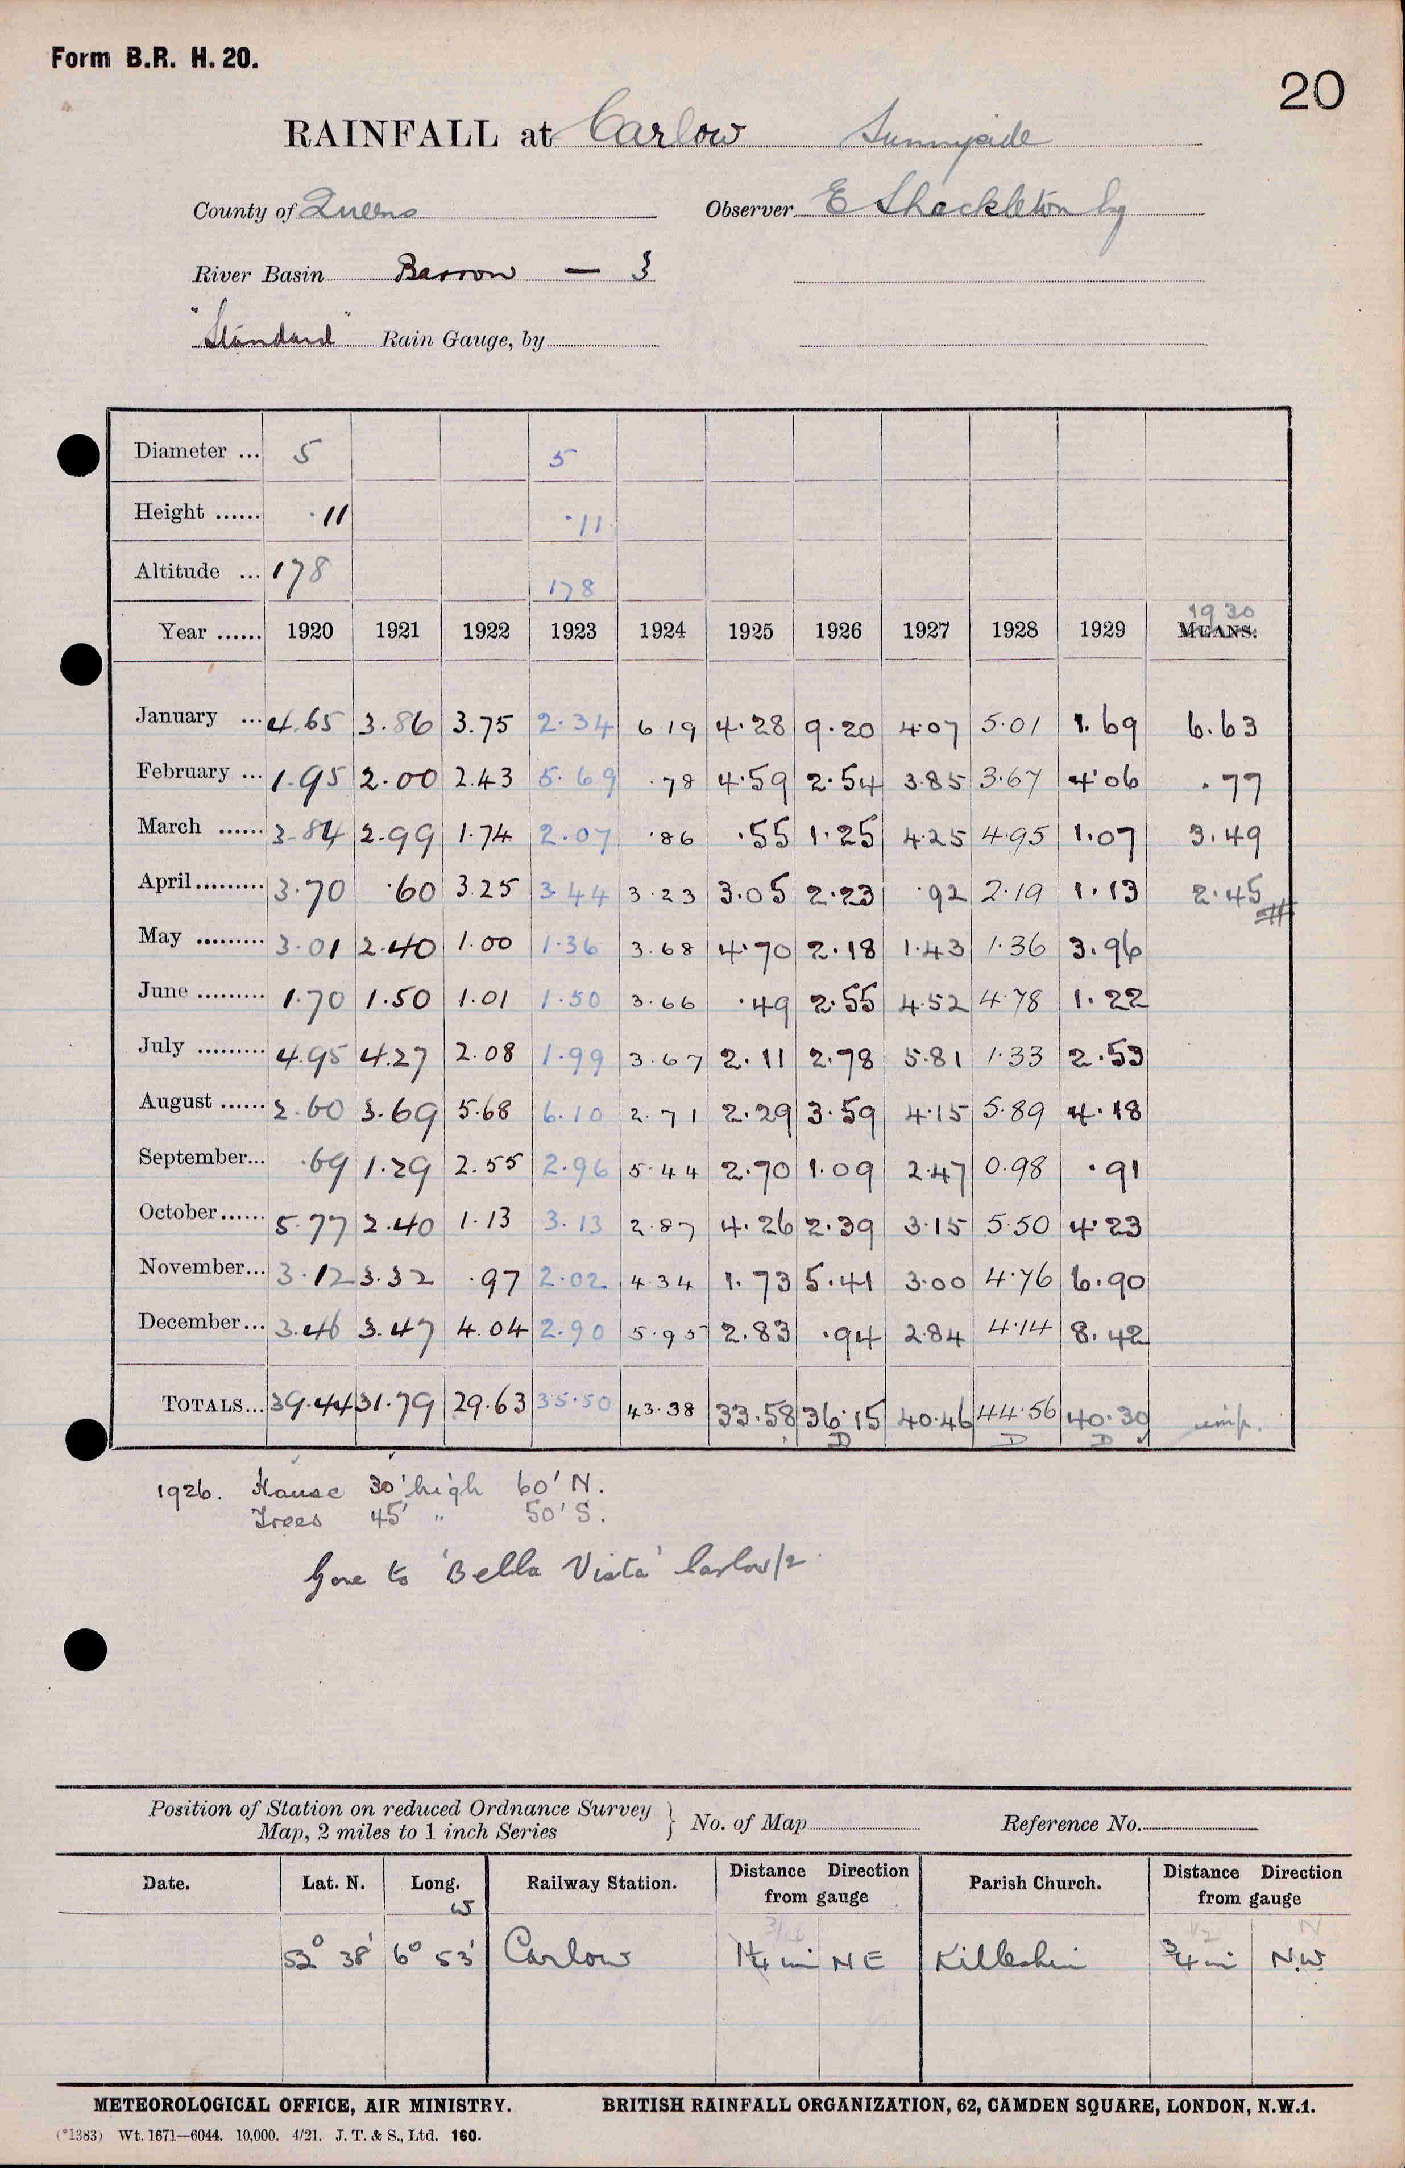 Form B.R. H. 20.
20
RAINFALL at Carlow Sunnyside
County of Queens Observer E Shackleton Esq
River Basin Barrow — 3
"Standard" Rain Gauge, by
Diameter ... 5 5
Height ...... .11 .11
Altitude ... 178 178
1930
Year ...... 1920 1921 1922 1923 1924 1925 1926 1927 1928 1929 MEANS.
January ... 4.65 3.86 3.75 2.34 6.19 4.28 9.20 4.07 5.01 1.69 6.63
February ... 1.95 2.00 2.43 5.69 .78 4.59 2.54 3.85 3.67 4.06 .77
March ...... 3.84 2.99 1.74 2.07 .86 .55 1.25 4.25 4.95 1.07 3.49
April ......... 3.70 .60 3.25 3.44 3.23 3.05 2.23 .92 2.19 1.13 2.45
May ......... 3.01 2.40 1.00 1.36 3.68 4.70 2.18 1.43 1.36 3.96
June ......... 1.70 1.50 1.01 1.50 3.66 .49 2.55 4.52 4.78 1.22
July ......... 4.95 4.27 2.08 1.99 3.67 2.11 2.78 5.81 1.33 2.53
August ...... 2.60 3.69 5.68 6.10 2.71 2.29 3.59 4.15 5.89 4.18
September... .69 1.29 2.55 2.96 5.44 2.70 1.09 2.47 0.98 .91
October...... 5.77 2.40 1.13 3.13 2.87 4.26 2.39 3.15 5.50 4.23
November... 3.12 3.32 .97 2.02 4.34 1.73 5.41 3.00 4.76 6.90
December... 3.46 3.47 4.04 2.90 5.95 2.83 .94 2.84 4.14 8.42
TOTALS... 39.44 31.79 29.63 35.50 43.38 33.58 36.15 40.46 44.56 40.30 imp.
D D D
1926. House 30' high 60' N.
Trees 45' " 50' S.
Gone to 'Bella Vista' Carlow/2
Position of Station on reduced Ordnance Survey
Map, 2 miles to 1 inch Series } No. of Map Reference No.
Date. Lat. N. Long. W Railway Station. Distance Direction from gauge Parish Church. Distance Direction from gauge
1/2 N
52° 38' 6° 53' Carlow 1¼ mi NE Killeshin ¾ mi N.W.
METEOROLOGICAL OFFICE, AIR MINISTRY. BRITISH RAINFALL ORGANIZATION, 62, CAMDEN SQUARE, LONDON, N.W.1.
(*1383) Wt. 1671—6044. 10,000. 4/21. J. T. & S., Ltd. 160.